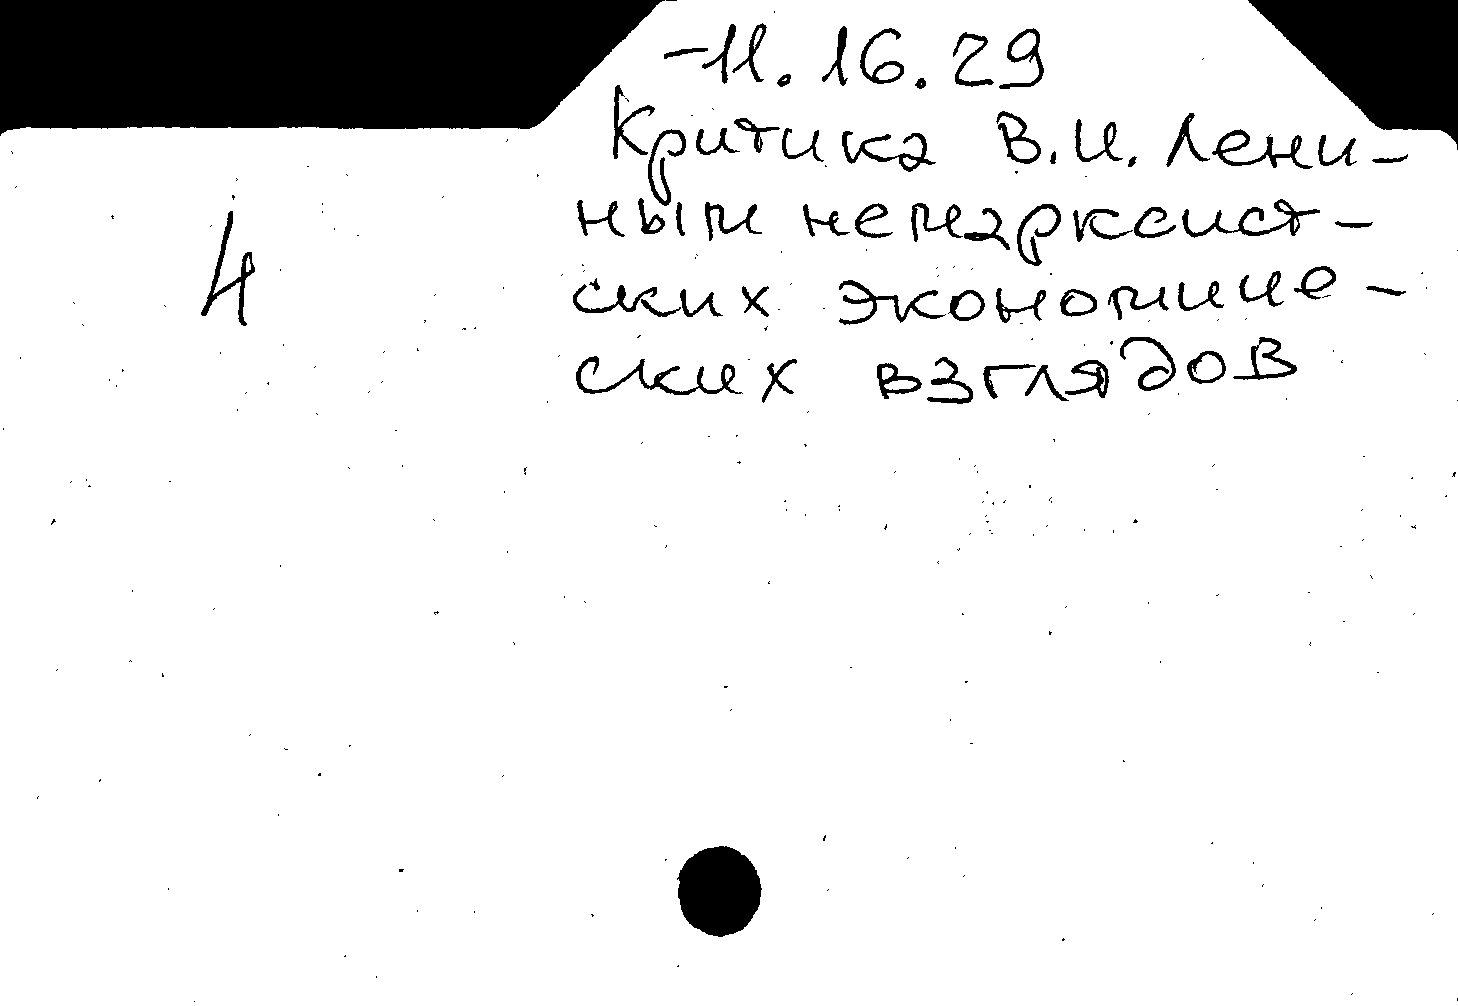 -11.16.29
Критика В.И. Лени-
ным немарксист-
4
ских экономиче-
ских взглядов